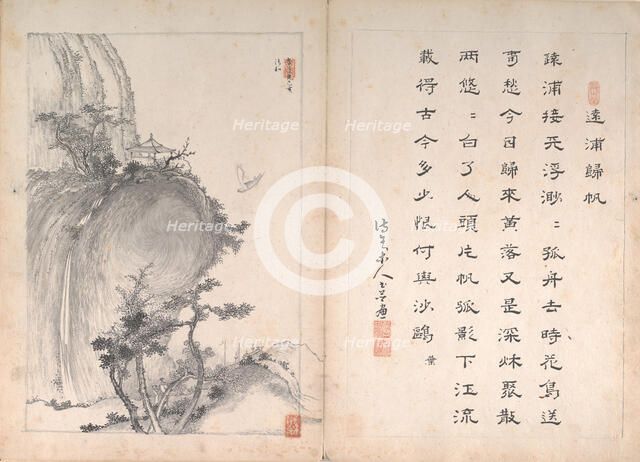 遠浦歸帆
浦接天浮渺〻孤舟去時花鳥送
愁今日歸來黃落又是深秋聚散
两悠〻白了人頭片帆孤影下江流
載得古今多少恨付與沙鷗 葉
Heritage
Heritage
Heritage
Heritage
Heritage
Heritage
Heritage